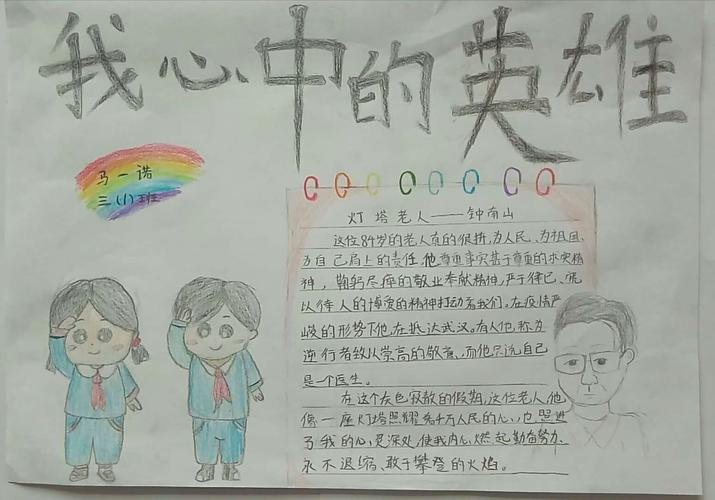 我心中的英雄
马一诺
三(1)班
灯塔老人——钟南山
这位84岁的老人真的很拼,为人民、为祖国、
为自己肩上的责任。他尊重事实甚于尊重的求实精
神,鞠躬尽瘁的敬业奉献精神,严于律己、宽
以待人的博爱的精神打动着我们。在疫情严
峻的形势下他,在抵达武汉。有人他,称为
逆行者致以崇高的敬意,而他只说自己
是一个医生。
在这个灰色寂散的假期,这位老人,他
像一座灯塔照耀着千万人民的心,也照进
了我的心灵深处,使我内心燃起勤奋努力、
永不退缩、敢于攀登的火焰。